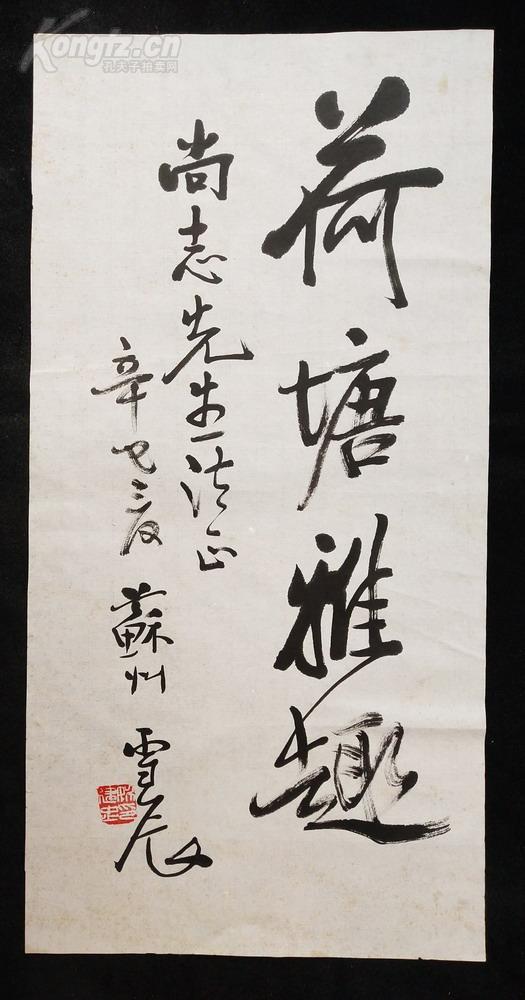 荷塘雅趣
尚志先生法正
辛巳之夏 蘇州 雪辰
Kongfz.cn
孔夫子拍卖网